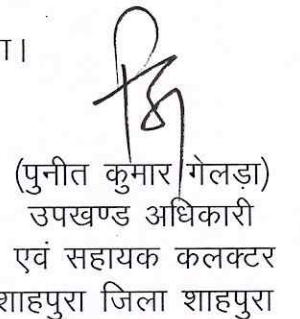 ा।
(पुनीत कुमार गेलड़ा)
उपखण्ड अधिकारी
एवं सहायक कलक्टर
शाहपुरा जिला शाहपुरा